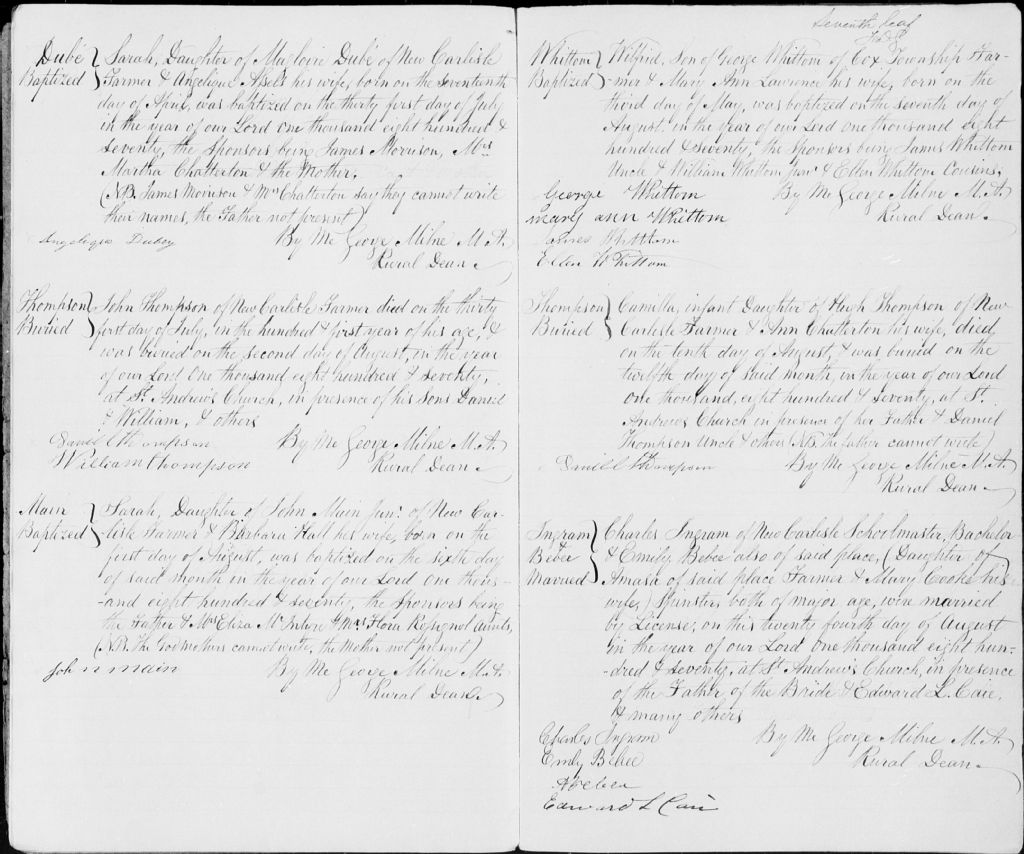 Dubé Baptized } Sarah, Daughter of Magloire Dubé of New Carlisle
Farmer & Angelique Assels his wife, born on the seventeenth
day of April, was baptized on the thirty first day of July
in the year of our Lord one thousand eight hundred &
seventy, the Sponsors being James Morrison, Mrs
Martha Chatterton & the Mother.
(NB. James Morrison & Mrs Chatterton say they cannot write
their names, the Father not present)
Angelique Dubey By Me George Milne M.A.
Rural Dean
Thompson Buried } John Thompson of New Carlisle Farmer died on the thirty
first day of July, in the hundred & first year of his age, &
was buried on the second day of August, in the year
of our Lord one thousand eight hundred & seventy,
at St. Andrew's Church, in presence of his Sons Daniel
& William, & others
Daniel Thompson By Me George Milne M.A.
William thompson Rural Dean
Main Baptized } Sarah, Daughter of John Main Junr. of New Car-
-lisle Farmer & Barbara Hall his wife, born on the
first day of August, was baptized on the sixth day
of said month in the year of our Lord one thous-
-and eight hundred & seventy, the Sponsors being
the Father & Mrs Eliza McIntyre & Mrs Flora Rosignol Aunts,
(N.B. The Godmothers cannot write, the Mother not present)
John main By Me George Milne M.A.
Rural Dean
Seventh leaf
Whittom Baptized } Wilfrid, Son of George Whittom of Cox Township Far-
-mer & Mary Ann Lawrence his wife, born on the
third day of May, was baptized on the seventh day of
August in the year of our Lord one thousand eight
hundred & seventy, the Sponsors being James Whittom
Uncle & William Whittom Junr & Ellen Whittom Cousins,
George Whittom By Me George Milne M.A.
mary ann Whittom Rural Dean
James Whittom
Ellen Whittom
Thompson Buried } Camilla, infant Daughter of Hugh Thompson of New
Carlisle Farmer & Ann Chatterton his wife, died
on the tenth day of August, & was buried on the
twelfth day of said month, in the year of our Lord
one thousand, eight hundred & seventy, at St.
Andrew's Church in presence of her Father & Daniel
Thompson Uncle & others (NB the father cannot write)
Daniel thompson By Me George Milne M.A.
Rural Dean
Ingram & Bebee Married } Charles Ingram of New Carlisle Schoolmaster, Bachelor
& Emily Bebee also of said place, (Daughter of
Amasa of said place Farmer & Mary Cooke his
wife,) Spinster, both of major age, were married
by License, on this twenty fourth day of August
in the year of our Lord one thousand eight hun-
-dred & seventy, at St. Andrew's Church, in presence
of the Father of the Bride & Edward L. Caie,
& many others
Charles Ingram By Me George Milne M.A.
Emily Bebee Rural Dean
Edward L Caie